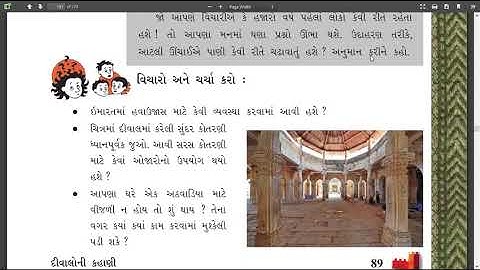 જો આપણે વિચારીએ કે હજારો વર્ષ પહેલાં લોકો કેવી રીતે રહેતા
હશે ! તો આપણા મનમાં ઘણા પ્રશ્નો ઊભા થશે. ઉદાહરણ તરીકે,
આટલી ઊંચાઈએ પાણી કેવી રીતે ચઢાવાતું હશે ? અનુમાન કરીને કહો.
વિચારો અને ચર્ચા કરો :
• ઇમારતમાં હવાઉજાસ માટે કેવી વ્યવસ્થા કરવામાં આવી હશે ?
• ચિત્રમાં દીવાલમાં કરેલી સુંદર કોતરણી
ધ્યાનપૂર્વક જુઓ. આવી સરસ કોતરણી
માટે કેવાં ઓજારોનો ઉપયોગ થયો
હશે ?
• આપણા ઘરે એક અઠવાડિયા માટે
વીજળી ન હોય તો શું થાય ? તેના
વગર કયાં કયાં કામ કરવામાં મુશ્કેલી
પડી શકે ?
દીવાલોની કહાણી
89